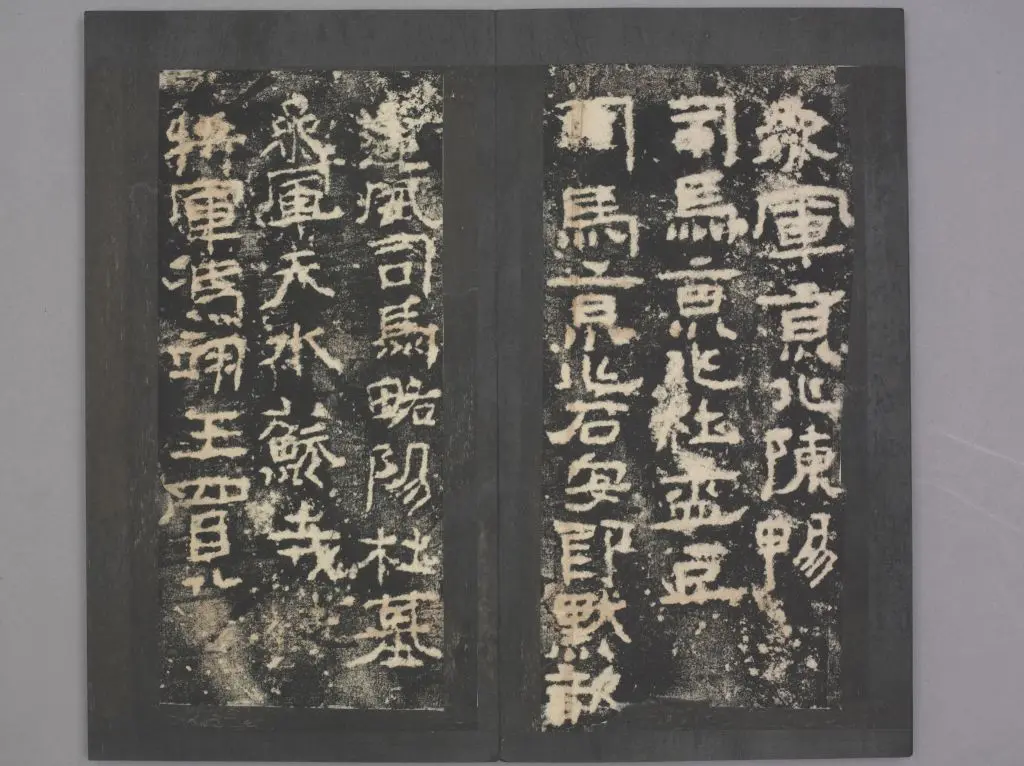 參軍京兆陳暢
司馬京兆杜益臣
司馬京兆石安郭默
建威司馬略陽杜基
參軍天水蘇
將軍馮翊王買